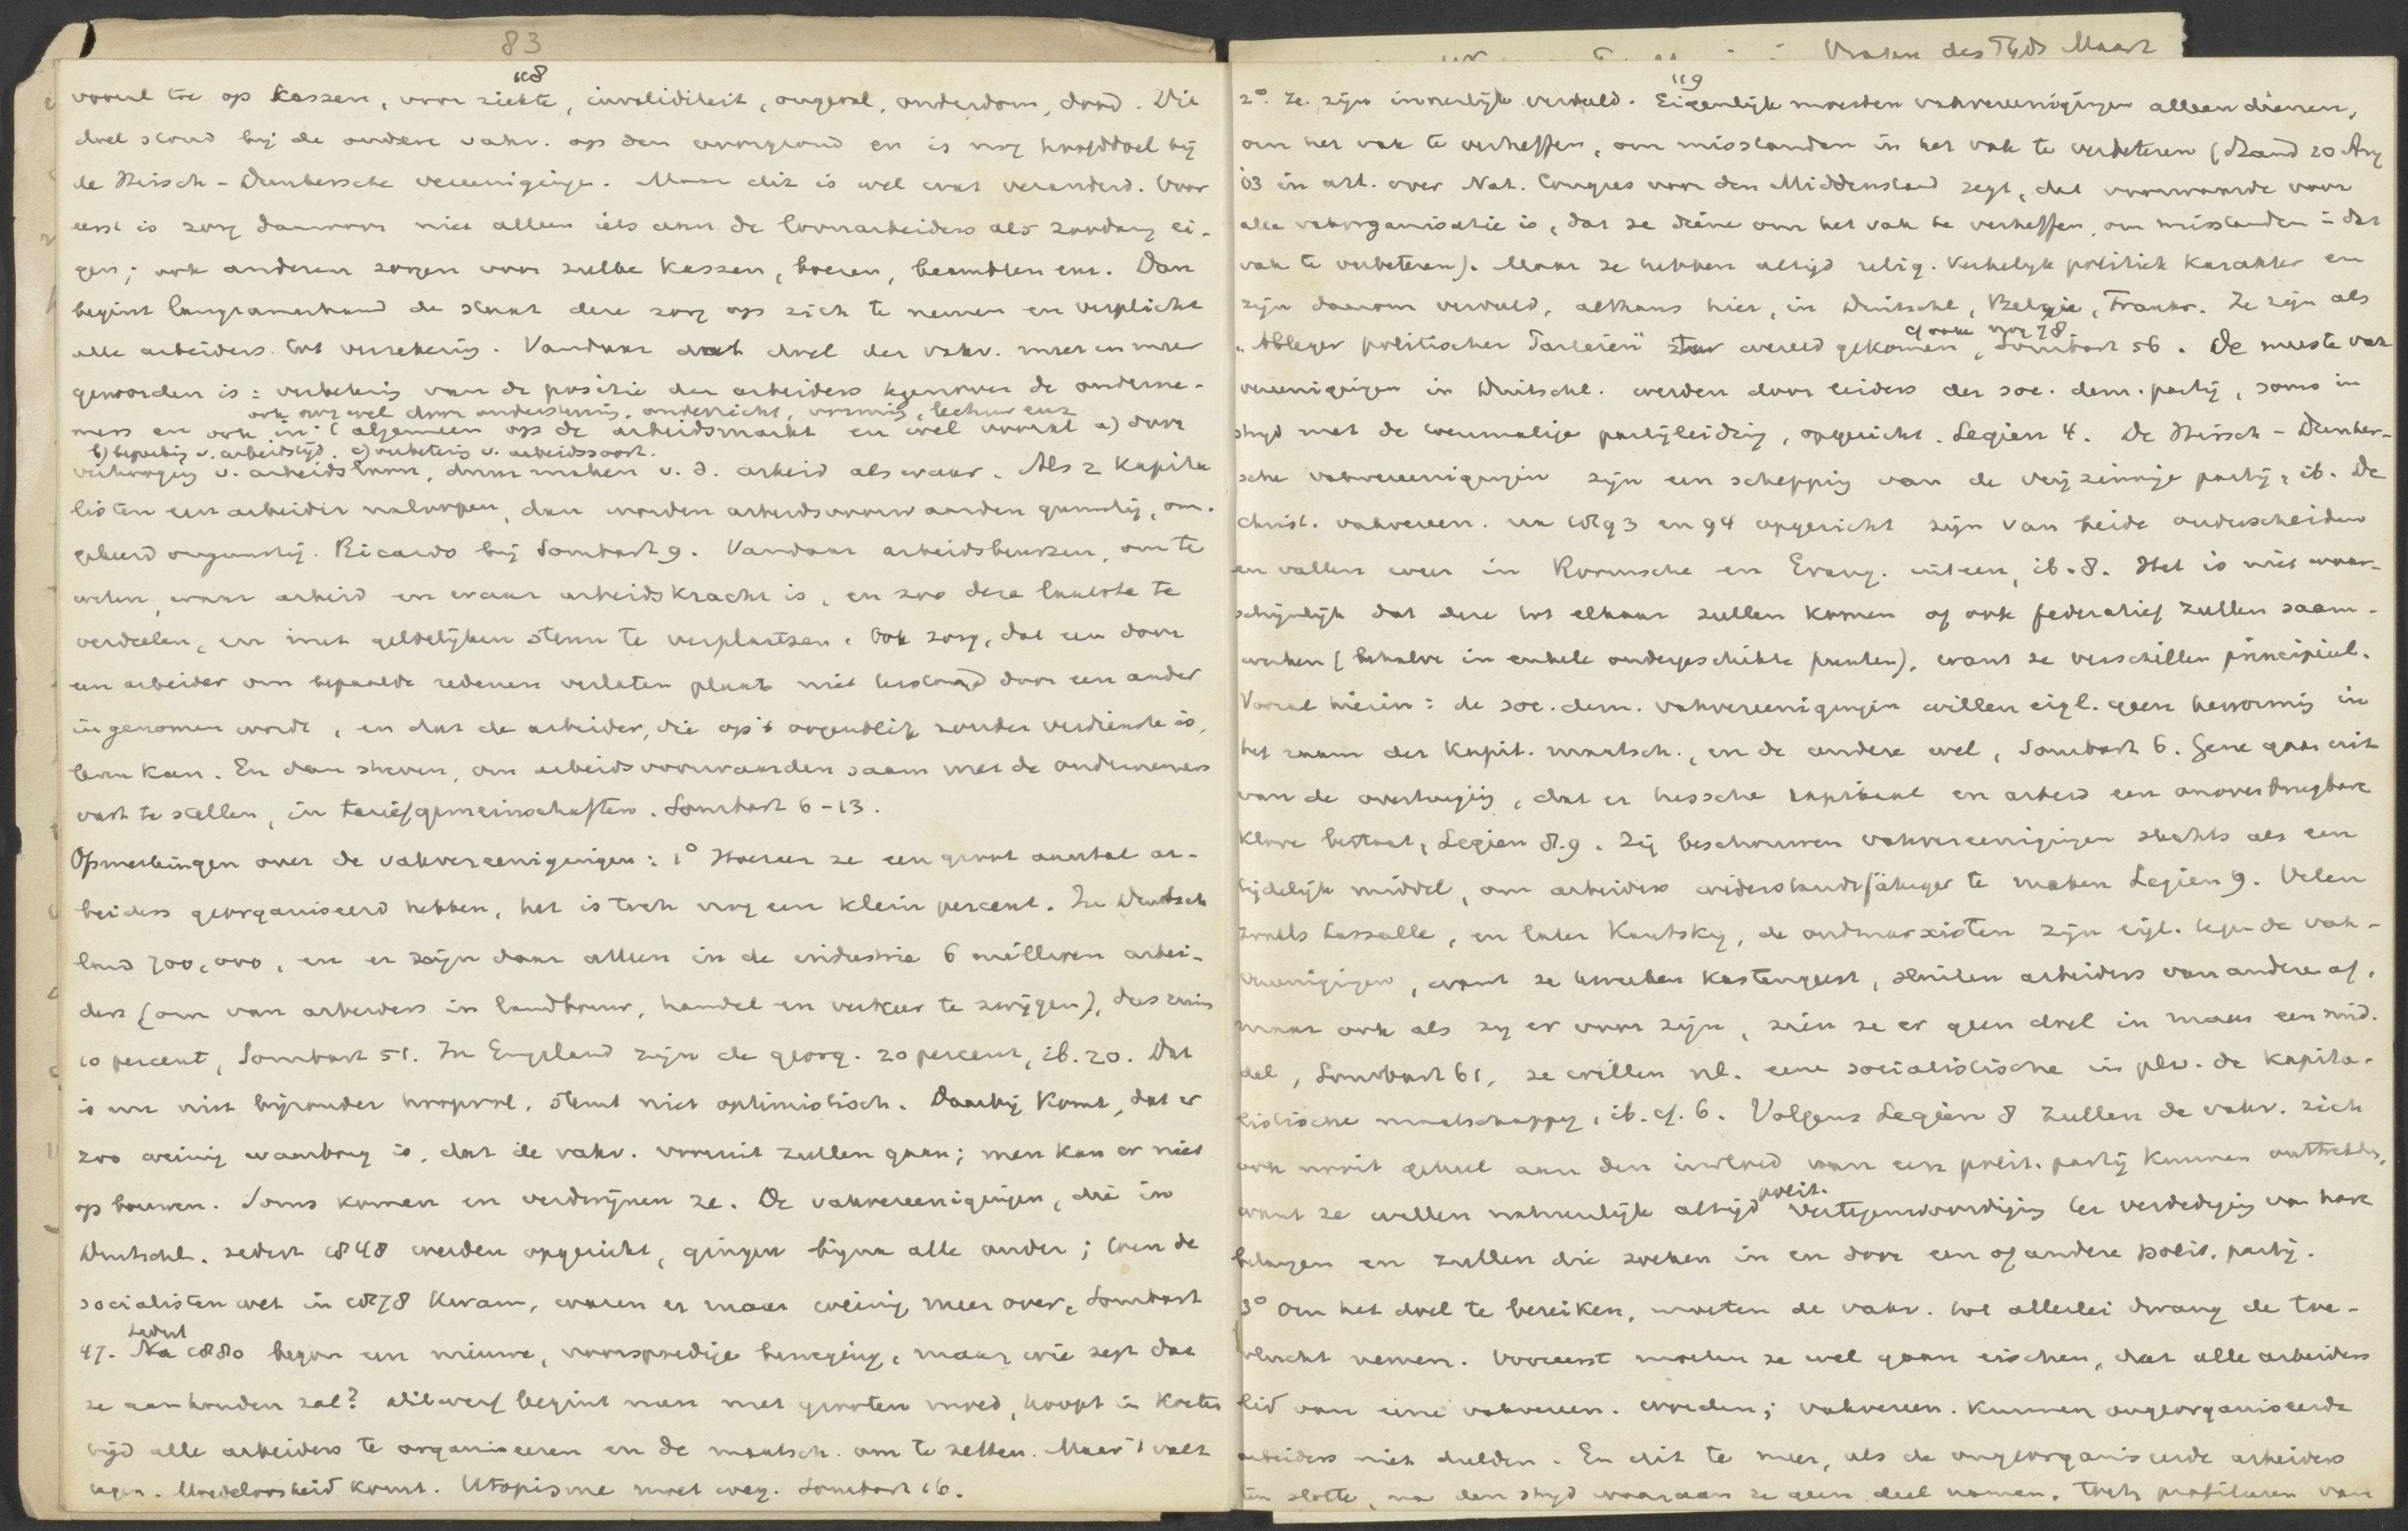 83
118
vooral toe op kassen, voor ziekte, invaliditeit, ongeval, ouderdom, dood. Dit
doel stond bij de oudere vakv. op den voorgrond en is nog hoofddoel bij
de Hirsch-Dunkersche vereenigingen. Maar dit is wel wat veranderd. Voor
eerst is zorg daarvoor niet alleen iets aan de loonarbeiders als zoodanig ei-
gen; ook anderen zorgen voor zulke kassen, boeren, beambten enz. Dan
begint langzamerhand de staat deze zorg op zich te nemen en verplicht
alle arbeiders tot verzekering. Vandaar dat doel der vakv. meer en meer
geworden is: verbetering van de positie der arbeiders tegenover de onderne-
ook nog wel door ondersteuning, onderricht, vorming, lectuur enz
mers en ook in 't algemeen op de arbeidsmarkt en wel vooral a) door
b) beperking v. arbeidstijd. c) verbetering v. arbeidssoort.
verhooging v. arbeidsloon, duur maken v. d. arbeid als waar. Als 2 kapita
listen een arbeider naloopen, dan worden arbeidsvoorwaarden gunstig, om-
gekeerd ongunstig. Ricardo bij Sombart 9. Vandaar arbeidsbeurzen, om te
weten, waar arbeid en waar arbeidskracht is, en zoo deze laatste te
verdeelen, en met geldelijken steun te verplaatsen. Ook zorg, dat een door
een arbeider om bepaalde redenen verlaten plaats niet terstond door een ander
ingenomen wordt, en dat de arbeider, die op 't oogenblik zonder verdienste is,
leven kan. En dan streven, om arbeidsvoorwaarden saam met de ondernemers
vast te stellen, in tariefgemeinschaften. Sombart 6-13.
Opmerkingen over de vakvereenigingen: 1° Hoezeer ze een groot aantal ar-
beiders georganiseerd hebben, het is toch nog een klein percent. In Duitsch
land 700,000, en er zijn daar alleen in de industrie 6 millioen arbei-
ders (om van arbeiders in landbouw, handel en verkeer te zwijgen), dus ruim
10 percent, Sombart 51. In Engeland zijn de georg. 20 percent, ib. 20. Dat
is nu niet bijzonder hoopvol, stemt niet optimistisch. Daarbij komt, dat er
zoo weinig waarborg is, dat de vakv. vooruit zullen gaan; men kan er niet
op bouwen. Soms komen en verdwijnen ze. De vakvereenigingen, die in
Duitschl. sedert 1848 werden opgericht, gingen bijna alle onder; toen de
socialistenwet in 1878 kwam, waren er maar weinig meer over, Sombart
Sedert
47. Na 1880 begon een nieuwe, voorspoedige beweging, maar wie zegt dat
ze aanhouden zal? Dikwerf begint men met grooten moed, hoopt in korten
tijd alle arbeiders te organiseeren en de maatsch. om te zetten. Maar 't valt
tegen. Moedeloosheid komt. Utopisme moet weg. Sombart 16.
Vragen des Tijds Maart
119
2°. Ze zijn innerlijk verdeeld. Eigenlijk moesten vakvereenigingen alleen dienen,
om het vak te verheffen, om misstanden in het vak te verbeteren (Stand 20 Aug
'03 in art. over Nat. Congres voor den Middenstand zegt, dat voorwaarde voor
alle vakorganisatie is, dat ze diene om het vak te verheffen, om misstanden in dat
vak te verbeteren). Maar ze hebben altijd relig. kerkelijk politiek karakter en
zijn daarom verdeeld, althans hier, in Duitschl, België, Frankr. Ze zijn als
cf ook nog 78.
"Ableger politischer Parteien" ter wereld gekomen, Sombart 56. De meeste vak
vereenigingen in Duitschl. werden door leiders der soc. dem. partij, soms in
strijd met de toenmalige partijleiding, opgericht. Legien 4. De Hirsch-Dunker-
sche vakvereenigingen zijn een schepping van de vrijzinnige partij, ib. De
christ. vakvereen. na 1893 en 94 opgericht zijn van beide onderscheiden
en vallen weer in Roomsche en Evang. uiteen, ib. 8. Het is niet waar-
schijnlijk dat deze tot elkaar zullen komen of ook federatief zullen saam-
werken (behalve in enkele ondergeschikte punten), want ze verschillen principieel.
Vooral hierin: de soc. dem. vakvereenigingen willen eigl. geen hervorming in
het raam der kapit. maatsch., en de andere wel, Sombart 6. Gene gaan uit
van de overtuiging, dat er tusschen kapitaal en arbeid een onoverbrugbare
klove bestaat, Legien 8.9. Zij beschouwen vakvereenigingen slechts als een
tijdelijk middel, om arbeiders widerstandsfähiger te maken Legien 9. Velen
zooals Lassalle, en later Kautsky, de oudmarxisten zijn eigl. tegen de vak-
vereenigingen, want ze kweeken kastengeest, sluiten arbeiders van andere af,
maar ook als zij er voor zijn, zien ze er geen doel in maar een mid-
del, Sombart 61, ze willen nl. eene socialistische in plv. de kapita-
listische maatschappij, ib. cf. 6. Volgens Legien 8 zullen de vakv. zich
ook nooit geheel aan den invloed van een polit. partij kunnen onttrekken,
polit.
want ze willen natuurlijk altijd vertegenwoordiging ter verdediging van hare
belangen en zullen die zoeken in en door een of andere polit. partij.
3° Om het doel te bereiken, moeten de vakv. tot allerlei dwang de toe-
vlucht nemen. Vooreerst moeten ze wel gaan eischen, dat alle arbeiders
lid van eene vakvereen. worden; vakvereen. kunnen ongeorganiseerde
arbeiders niet dulden. En dit te meer, als de ongeorganiseerde arbeiders
ten slotte, na den strijd waaraan ze geen deel namen, toch profiteeren van